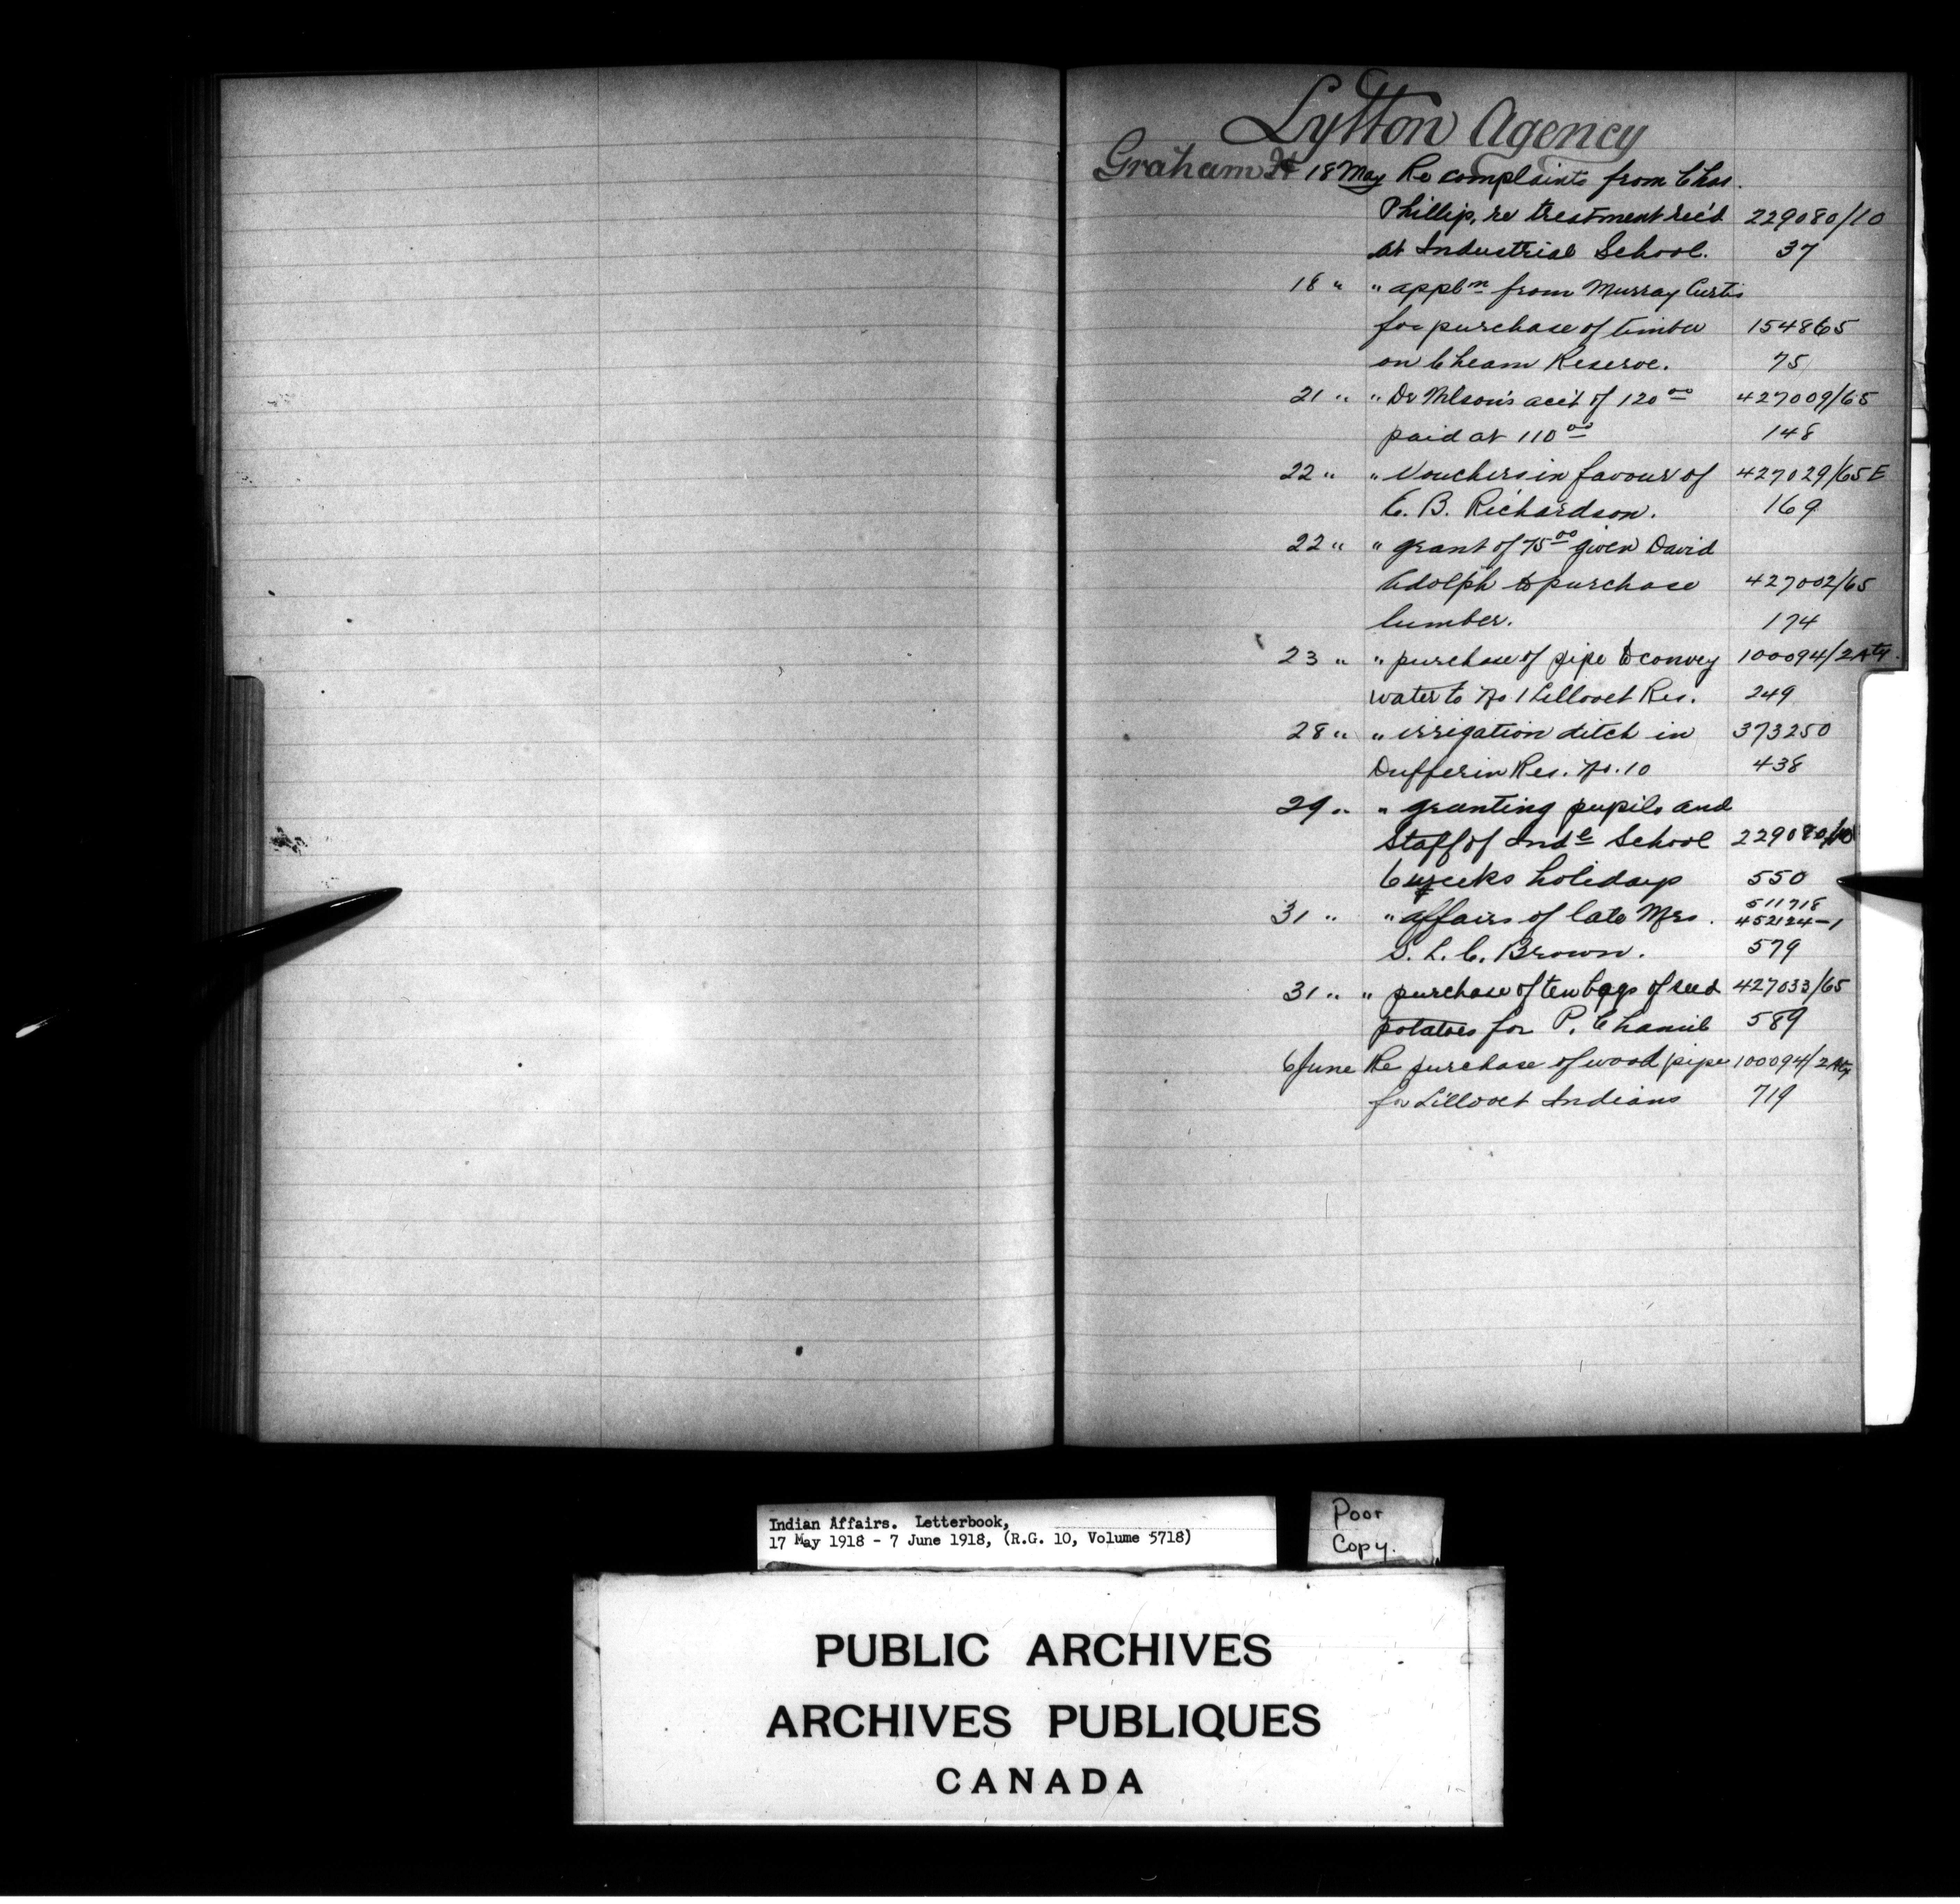 Lytton Agency
Graham H 18 May Re complaints from Chas.
Phillip, re treatment rec'd 229080/10
at Industrial School. 37
18 " " appln from Murray Curtis
for purchase of timber 154865
on Cheam Reserve. 75
21 " " Dr Nelson's acc't of 120 00 427009/65
paid at 110 00 148
22 " " Vouchers in favour of 427029/65 E
C. B. Richardson. 169
22 " " grant of 75 00 given David
Adolph to purchase 427002/65
lumber. 174
23 " " purchase of pipe to convey 100094/2 Aty.
water to No 1 Lillooet Res. 249
28 " " irrigation ditch in 373250
Dufferin Res. No. 10 438
29 " " granting pupils and
staff of Indl School 229080/10
6 weeks holidays 550
511718
31 " " affairs of late Mrs. 452124-1
S. L. C. Brown. 579
31 " " purchase of ten bags of seed 427033/65
potatoes for P. 589
6 June Re purchase of wood pipe 100094/2 Aty
for Lillooet Indians 719
Indian Affairs. Letterbook,
17 May 1918 - 7 June 1918, (R.G. 10, Volume 5718)
Poor
Copy.
PUBLIC ARCHIVES
ARCHIVES PUBLIQUES
CANADA